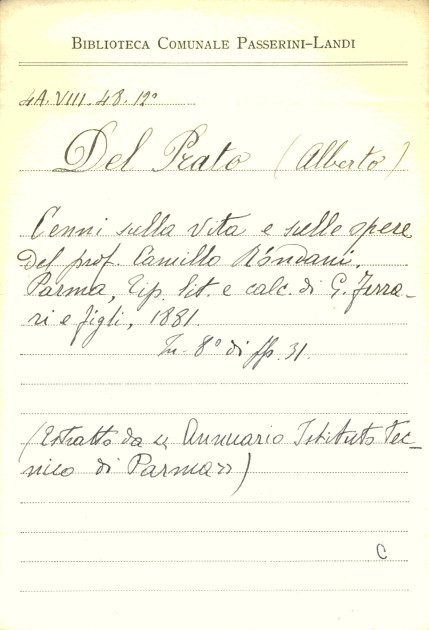 BIBLIOTECA COMUNALE PASSERINI-LANDI
4A.VIII.48.12º
Del Prato (Alberto)
Cenni sulla vita e sulle opere
del prof. Camillo Róndani.
Parma, Tip. lit. e calc. di G. Ferra-
ri e figli, 1881.
In-8º di pp. 31.
(Estratto da « Annuario Istituto Tec-
nico di Parma »)
C